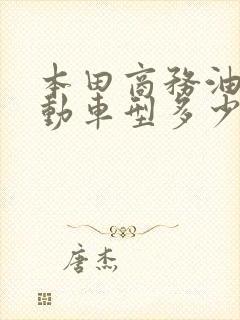 本田商務油
動車型多少
唐杰